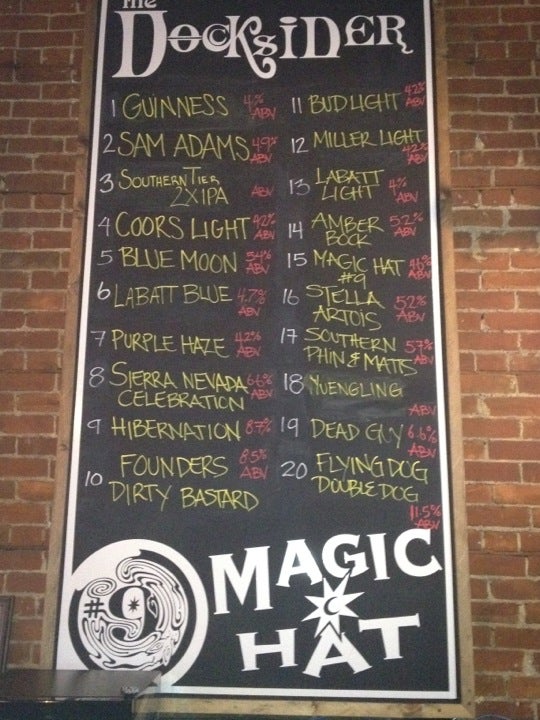 THE
DOCKSIDER
1 GUINNESS 4% ABV
2 SAM ADAMS 4.9% ABV
3 SOUTHERN TIER
2X IPA ABV
4 COORS LIGHT 4.2% ABV
5 BLUE MOON 5.4% ABV
6 LABATT BLUE 4.7% ABV
7 PURPLE HAZE 4.2% ABV
8 SIERRA NEVADA
CELEBRATION 6.6% ABV
9 HIBERNATION 8.7%
10 FOUNDERS
DIRTY BASTARD 8.5% ABV
11 BUD LIGHT 4.2% ABV
12 MILLER LIGHT 4.2% ABV
13 LABATT
LIGHT 4% ABV
14 AMBER
BOCK 5.2% ABV
15 MAGIC HAT
#9 ABV
16 STELLA
ARTOIS 5.2% ABV
17 SOUTHERN
PHIN & MATTS 5.7% ABV
18 YUENGLING
ABV
19 DEAD GUY 6.6% ABV
20 FLYING DOG
DOUBLE DOG
11.5% ABV
#9
MAGIC
HAT